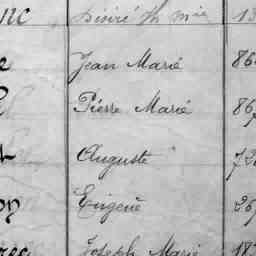 nc Désiré Th mie 13
e Jean Marié 86
Pierre Marié 86
t Auguste 72
on Eugène 26
rec Joseph Marie 18